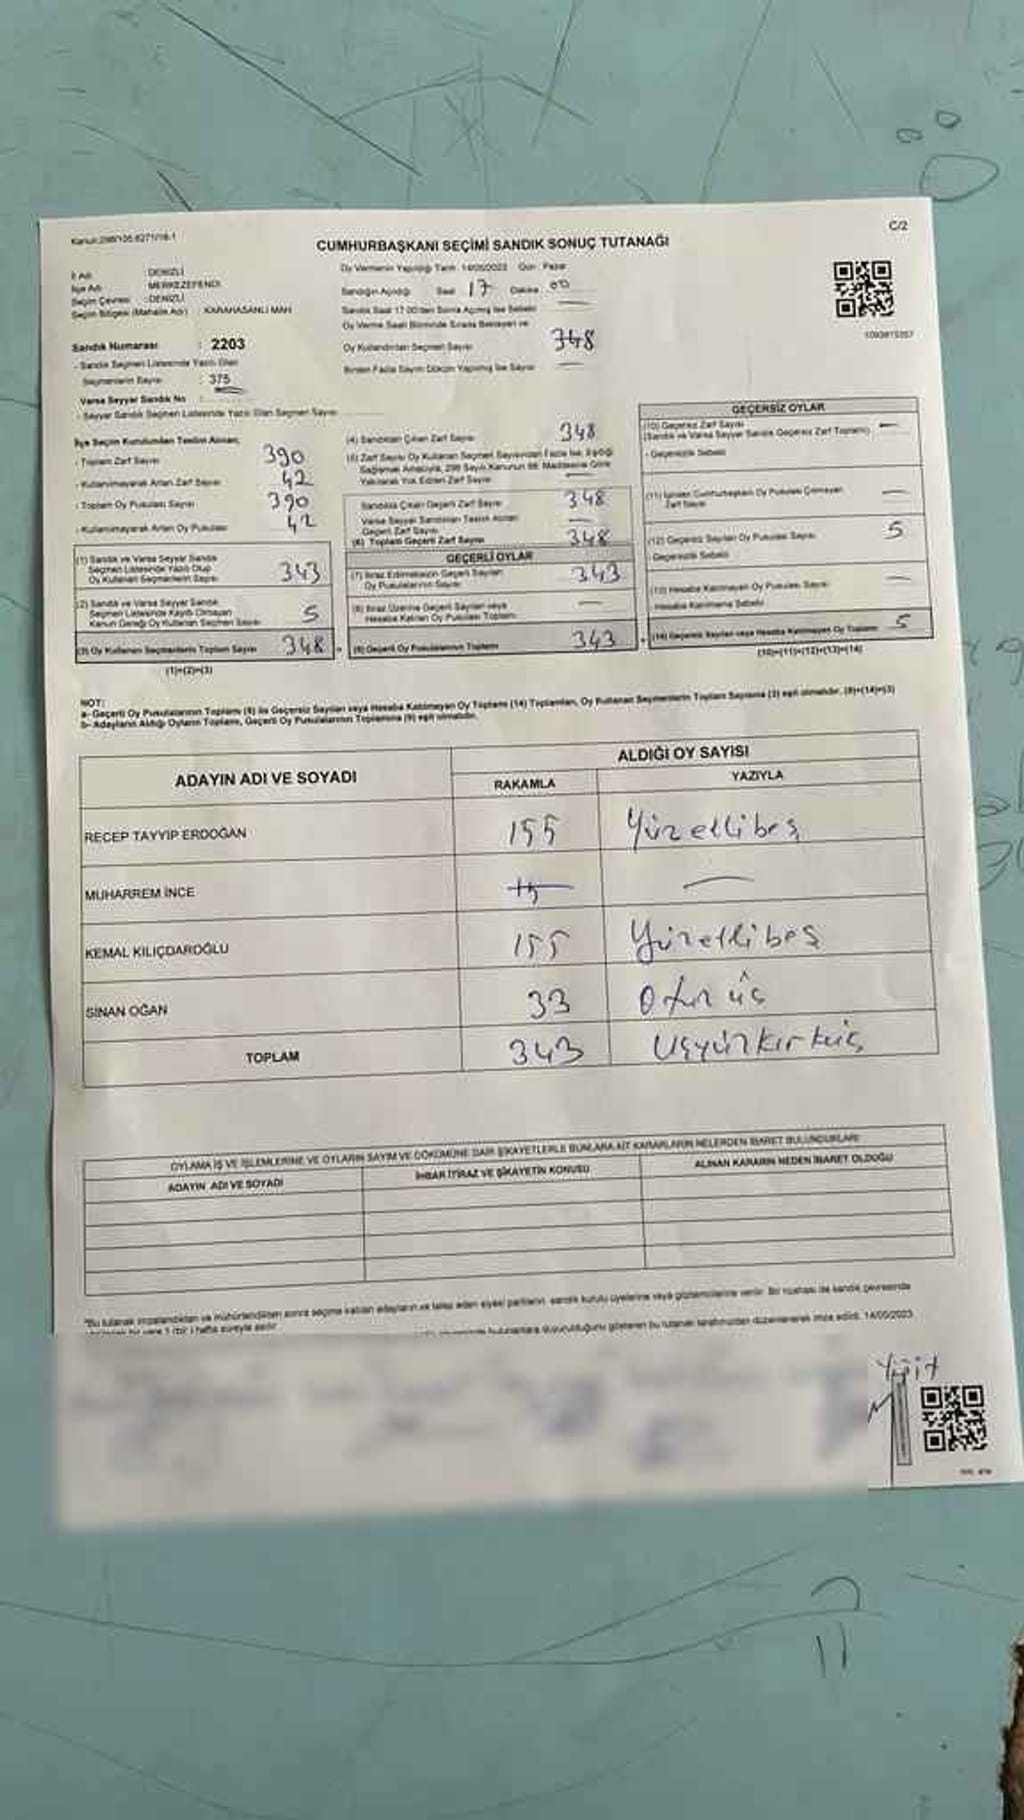 C/2
CUMHURBAŞKANI SEÇİMİ SANDIK SONUÇ TUTANAĞI
İl Adı : DENİZLİ
İlçe Adı : MERKEZEFENDİ
Seçim Çevresi : DENİZLİ
Seçim Bölgesi (Mahalle Adı) : KARAHASANLI MAH
Sandık Numarası : 2203
- Sandık Seçmen Listesinde Yazılı Olan
Seçmenlerin Sayısı : 375
Varsa Seyyar Sandık No :
- Seyyar Sandık Seçmen Listesinde Yazılı Olan Seçmen Sayısı
Oy Vermenin Yapıldığı Tarih 14/05/2023 Gün Pazar
Sandığın Açıldığı Saat 17 Dakika 00
Sandık Saat 17.00'den Sonra Açılmış İse Sebebi —
Oy Verme Saati Bitiminde Sırada Bekleyen ve
Oy Kullandırılan Seçmen Sayısı 348
Birden Fazla Sayım Döküm Yapılmış İse Sayısı —
İlçe Seçim Kurulundan Teslim Alınan;
- Toplam Zarf Sayısı 390
- Kullanılmayarak Artan Zarf Sayısı 42
- Toplam Oy Pusulası Sayısı 390
- Kullanılmayarak Artan Oy Pusulası 42
(1) Sandık ve Varsa Seyyar Sandık
Seçmen Listesinde Yazılı Olup
Oy Kullanan Seçmenlerin Sayısı 343
(2) Sandık ve Varsa Seyyar Sandık
Seçmen Listesinde Kayıtlı Olmayan
Kanun Gereği Oy Kullanan Seçmen Sayısı 5
(3) Oy Kullanan Seçmenlerin Toplam Sayısı 348
(1)+(2)=(3)
(4) Sandıktan Çıkan Zarf Sayısı 348
(5) Zarf Sayısı Oy Kullanan Seçmen Sayısından Fazla İse, Eşitliği
Sağlamak Amacıyla, 298 Sayılı Kanunun 98. Maddesine Göre
Yakılarak Yok Edilen Zarf Sayısı —
Sandıkta Çıkan Geçerli Zarf Sayısı 348
Varsa Seyyar Sandıktan Teslim Alınan
Geçerli Zarf Sayısı —
(6) Toplam Geçerli Zarf Sayısı 348
GEÇERLİ OYLAR
(7) İtiraz Edilmeksizin Geçerli Sayılan
Oy Pusulalarının Sayısı 343
(8) İtiraz Üzerine Geçerli Sayılan veya
Hesaba Katılan Oy Pusulası Toplamı —
(9) Geçerli Oy Pusulalarının Toplamı 343
GEÇERSİZ OYLAR
(10) Geçersiz Zarf Sayısı —
(Sandık ve Varsa Seyyar Sandık Geçersiz Zarf Toplamı)
- Geçersizlik Sebebi
(11) İçinden Cumhurbaşkanı Oy Pusulası Çıkmayan
Zarf Sayısı —
(12) Geçersiz Sayılan Oy Pusulası Sayısı 5
Geçersizlik Sebebi
(13) Hesaba Katılmayan Oy Pusulası Sayısı —
Hesaba Katılmama Sebebi
(14) Geçersiz Sayılan veya Hesaba Katılmayan Oy Toplamı 5
(10)+(11)+(12)+(13)=(14)
NOT:
a- Geçerli Oy Pusulalarının Toplamı (9) ile Geçersiz Sayılan veya Hesaba Katılmayan Oy Toplamı (14) Toplamları, Oy Kullanan Seçmenlerin Toplam Sayısına (3) eşit olmalıdır. (9)+(14)=(3)
b- Adayların Aldığı Oyların Toplamı, Geçerli Oy Pusulalarının Toplamına (9) eşit olmalıdır.
ADAYIN ADI VE SOYADI
ALDIĞI OY SAYISI
RAKAMLA YAZIYLA
RECEP TAYYİP ERDOĞAN 155 Yüzellibeş
MUHARREM İNCE —
KEMAL KILIÇDAROĞLU 155 Yüzellibeş
SİNAN OĞAN 33 Otuz üç
TOPLAM 343 Üçyüzkırküç
OYLAMA İŞ VE İŞLEMLERİNE VE OYLARIN SAYIM VE DÖKÜMÜNE DAİR ŞİKAYETLERLE BUNLARA AİT KARARLARIN NELERDEN İBARET BULUNDUKLARI
ADAYIN ADI VE SOYADI
İHBAR İTİRAZ VE ŞİKAYETİN KONUSU
ALINAN KARARIN NEDEN İBARET OLDUĞU
"Bu tutanak imzalandıktan ve mühürlendikten sonra seçime katılan adayların ve talep eden siyasi partilerin, sandık kurulu üyelerine veya gözlemcilerine verilir. Bir nüshası da sandık çevresinde
bu tutanak tarafımızdan düzenlenerek imza edildi. 14/05/2023
Yiğit